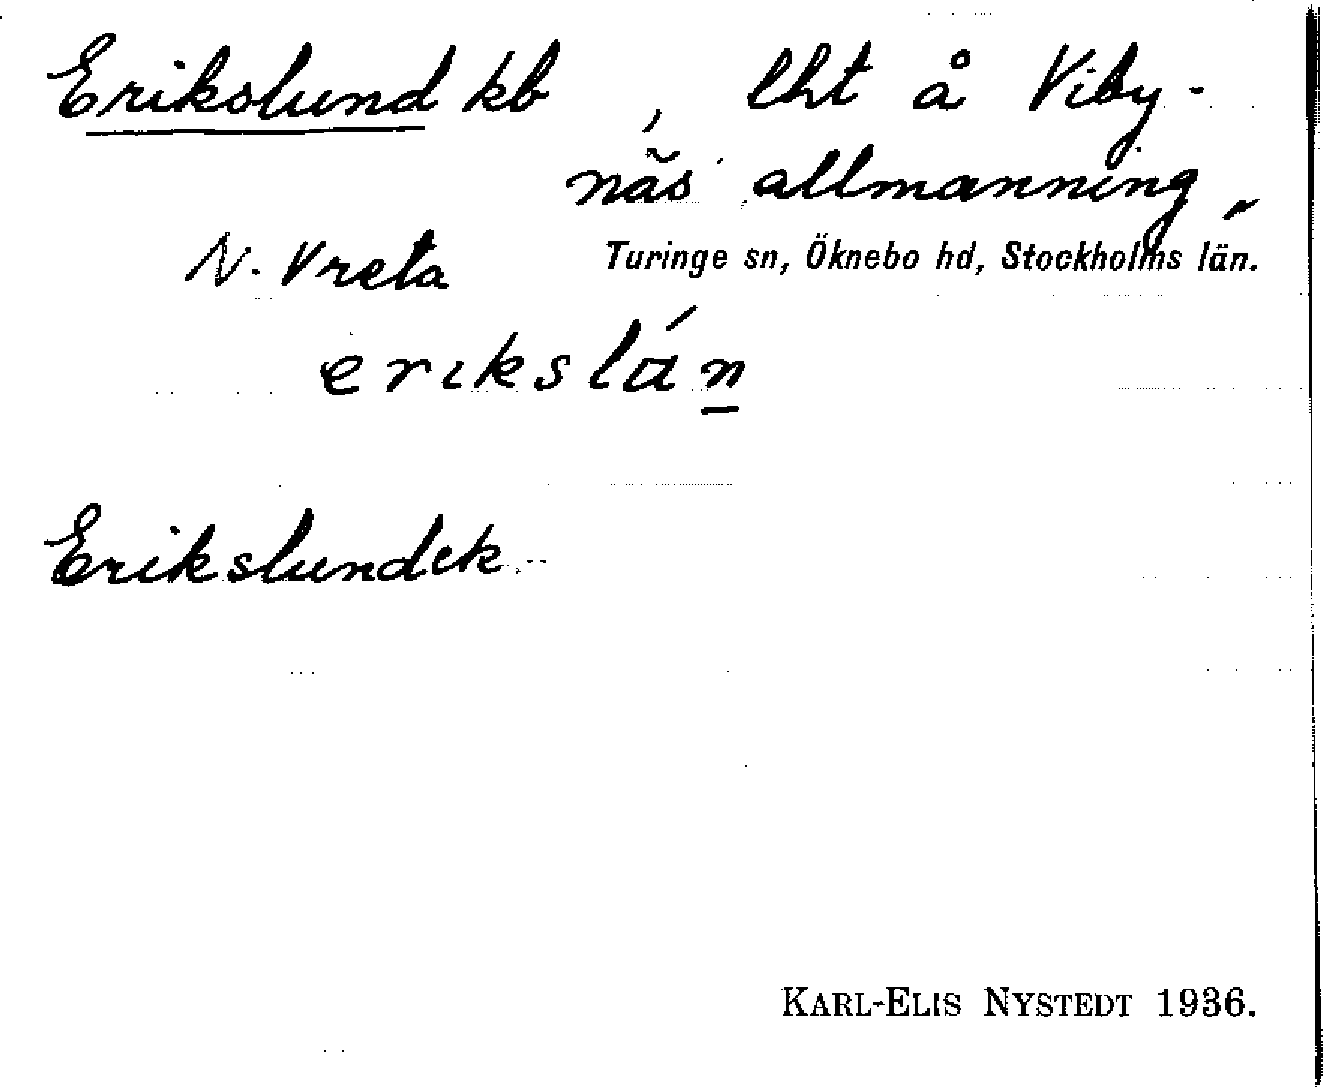 Erikslund kb , lht å Viby-
näs allmänning,
N. Vreta Turinge sn, Öknebo hd, Stockholms län.
erikslán
Erikslund ek
KARL-ELIS NYSTEDT 1936.